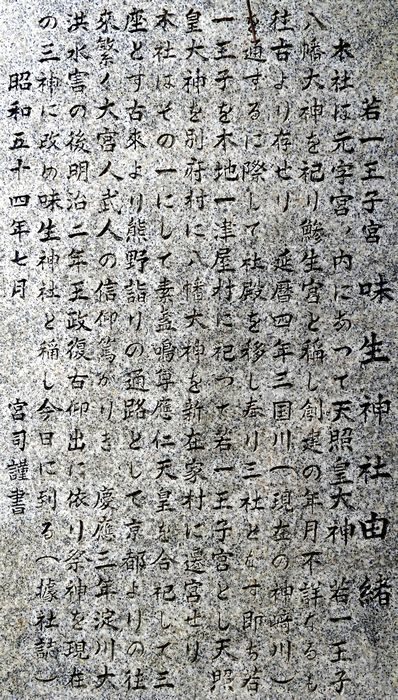 若一王子宮 味生神社由緒
本社は元字宮ノ内にあつて天照皇大神 若一王子
八幡大神を祀り鯵生宮と稱し創建の年月不詳なるも
往古より存せり 延暦四年三国川(現在の神崎川)
を通するに際して社殿を移し奉り三社となす即ち若
一王子を本地一津屋村に祀つて若一王子宮とし天照
皇大神を別府村に八幡大神を新在家村に遷宮せり
本社はその一にして素盞嗚尊應仁天皇を合祀して三
座とす古來より熊野詣りの通路として京都よりの往
來繁く大宮人武人の信仰篤かりき 慶應三年淀川大
洪水害の後明治二年王政復古仰出に依り祭神を現在
の三神に改め味生神社と稱し今日に到る(據社誌)
昭和五十四年七月 宮司謹書